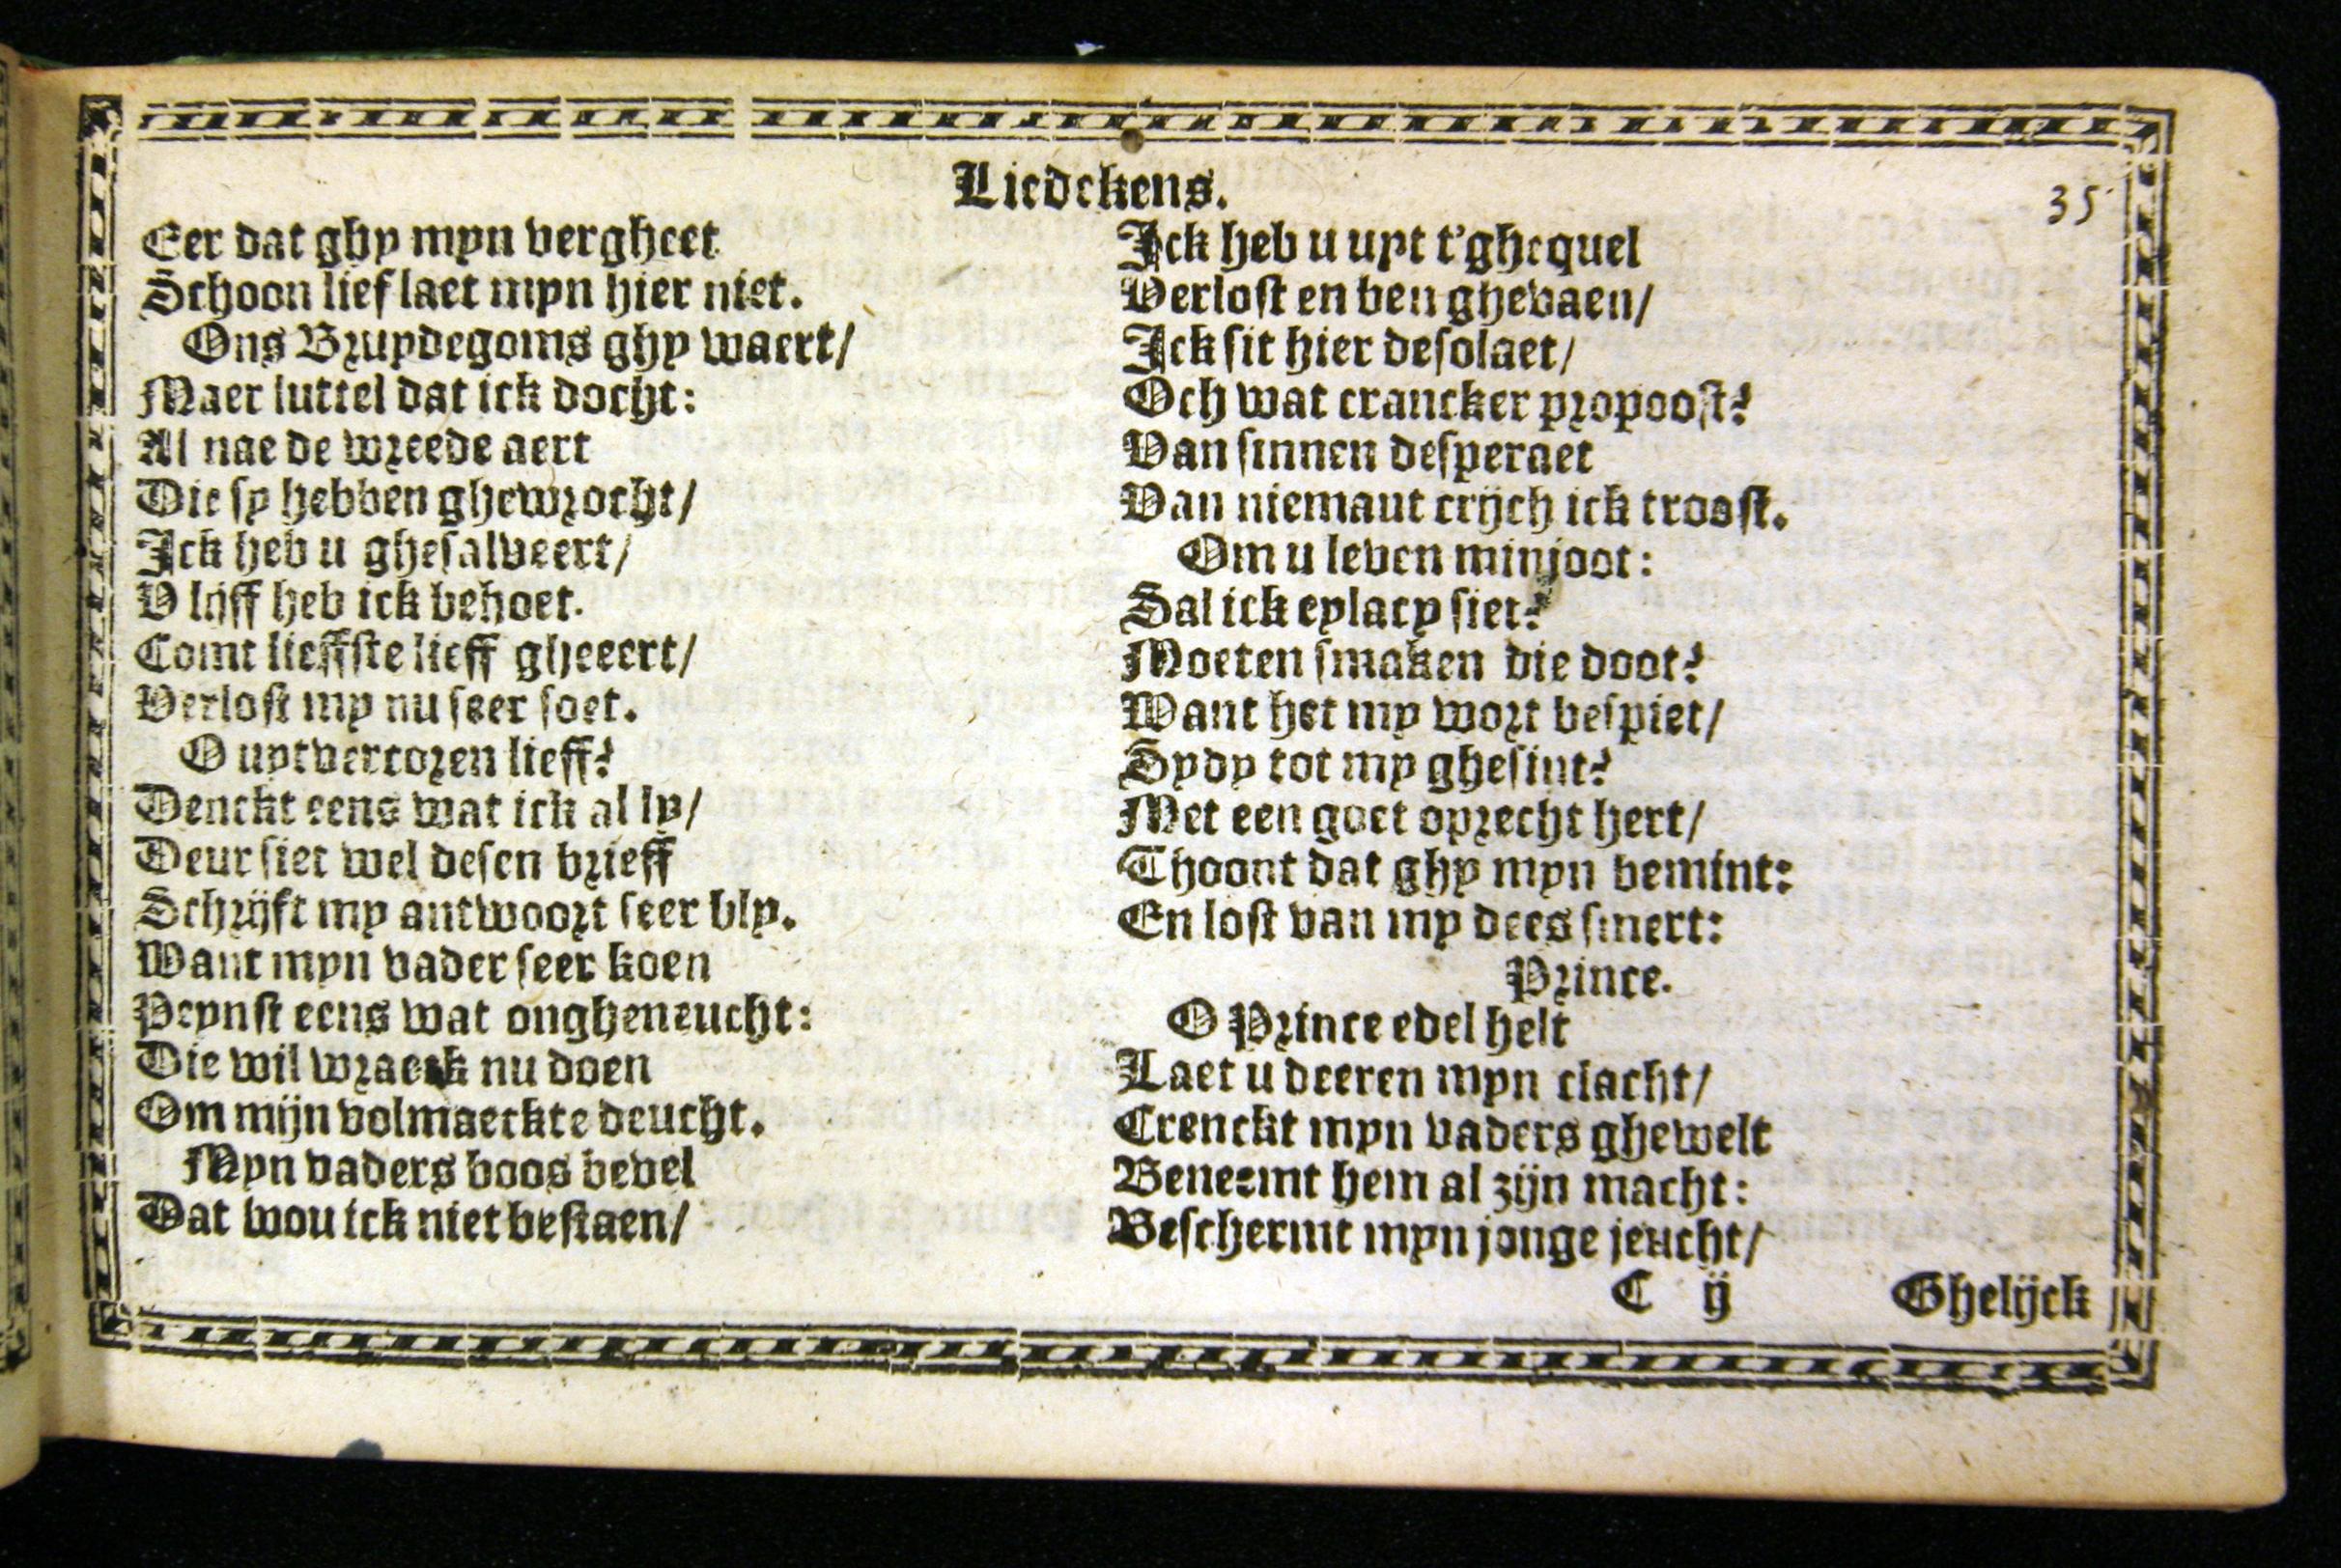 Liedekens.
35
Eer dat ghy myn vergheet
Schoon lief laet myn hier niet.
Ons Bruydegoms ghy waert/
Maer luttel dat ick docht:
Al nae de wreede aert
Die sy hebben ghewrocht/
Ick heb u ghesalveert/
V lijff heb ick behoet.
Comt lieffste lieff gheeert/
Verlost my nu seer soet.
O uytvercoren lieff?
Denckt eens wat ick al ly/
Deursiet wel desen brieff
Schrijft my antwoort seer bly.
Want myn vader seer koen
Peynst eens wat ongheneucht:
Die wil wraeck nu doen
Om mijn volmaeckte deucht.
Myn vaders boos bevel
Dat wou ick niet bestaen/
Ick heb u uyt t'ghequel
Verlost en ben ghevaen/
Ick sit hier desolaet/
Och wat crancker propoost?
Van sinnen desperaet
Van niemaut crijch ick troost.
Om u leven minjoot:
Sal ick eylacy siet?
Moeten smaken die doot?
Want het my wort bespiet/
Sydy tot my ghesint?
Met een goet oprecht hert/
Thoont dat ghy myn bemint:
En lost van my dees smert:
Prince.
O Prince edel helt
Laet u deeren myn clacht/
Crenckt myn vaders ghewelt
Beneemt hem al zijn macht:
Beschermt myn jonge jeucht/
C ij Ghelijck